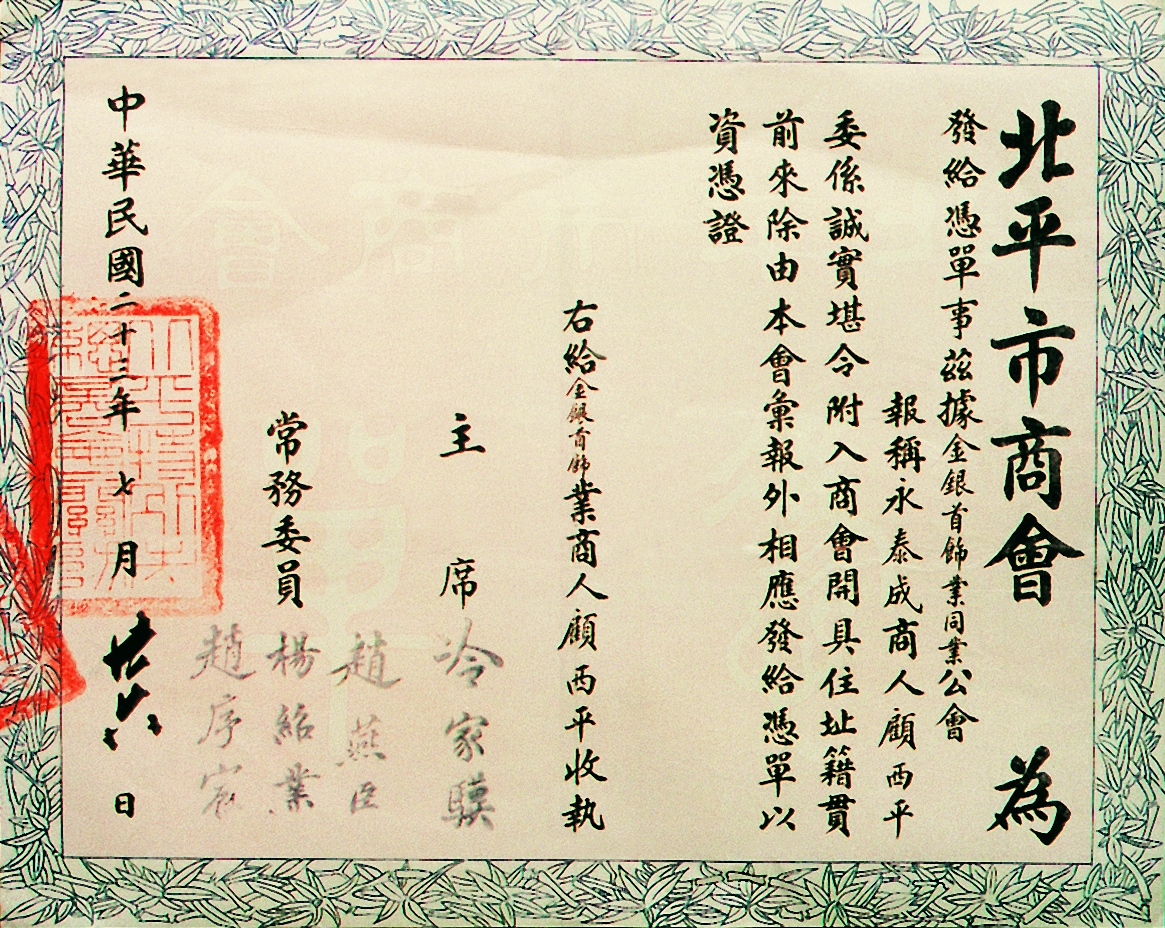 北平市商會為
發給憑單事茲據金銀首飾業同業公會
報稱永泰成商人顧西平
委係誠實堪令附入商會開具住址籍貫
前來除由本會彙報外相應發給憑單以
資憑證
右給金銀首飾業商人顧西平收執
主席冷家驥
趙燕臣
常務委員楊紹業
趙序宸
中華民國二十三年七月廿六日